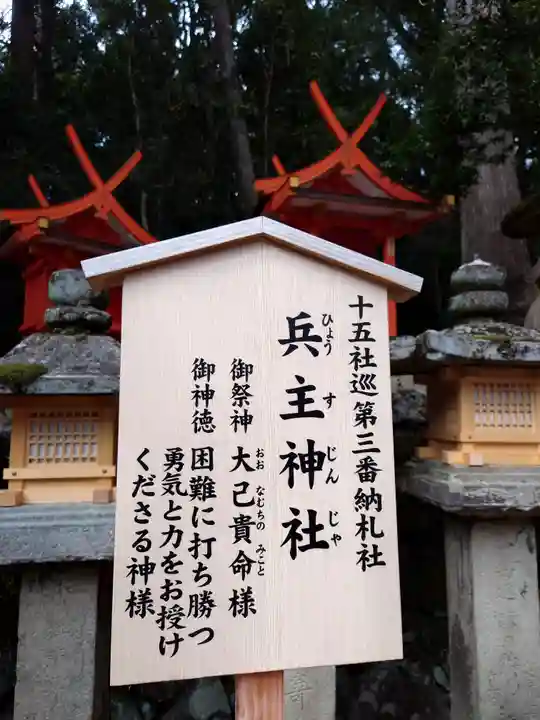 十五社巡第三番納札社
兵主神社
ひょう す じん じゃ
御祭神 大己貴命様
おお なむちの みこと
御神徳 困難に打ち勝つ
勇気と力をお授け
くださる神様